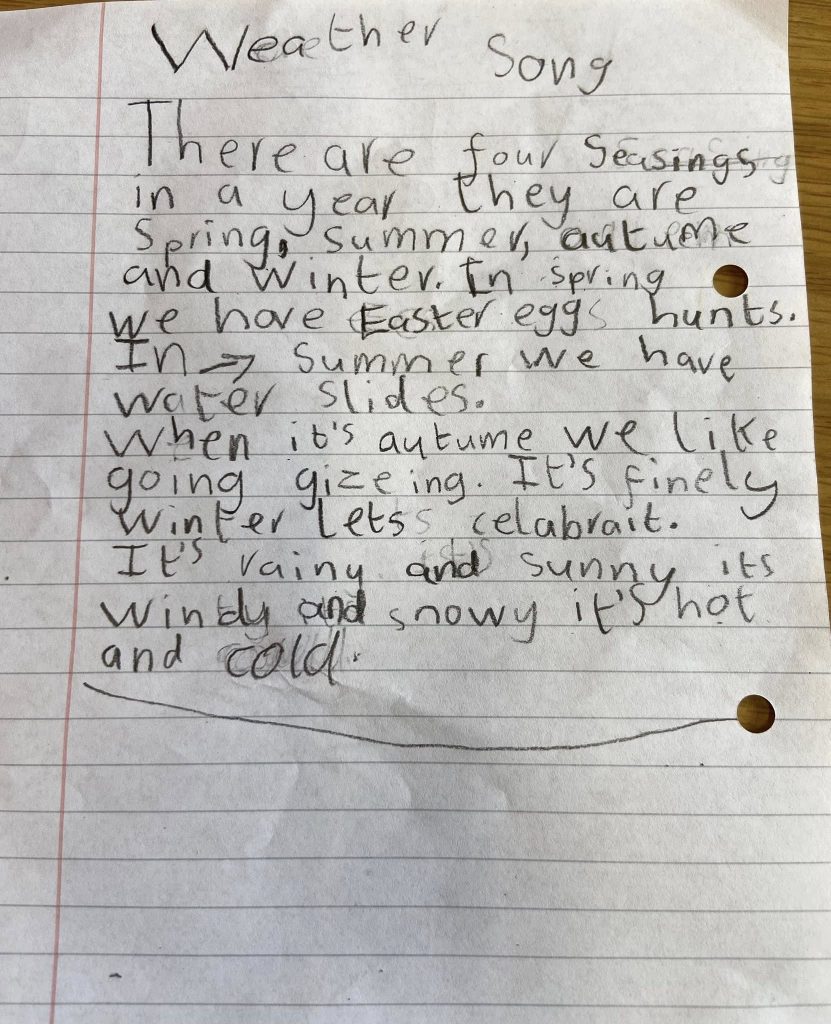 Weather Song
There are four Seasings
in a year they are
Spring, summer, autume
and Winter. In spring
we have Easter eggs hunts.
In → Summer we have
water slides.
When it's autume we like
going gizeing. It's finely
Winter Letss celabrait.
It's rainy and sunny its
windy and snowy it's hot
and cold.